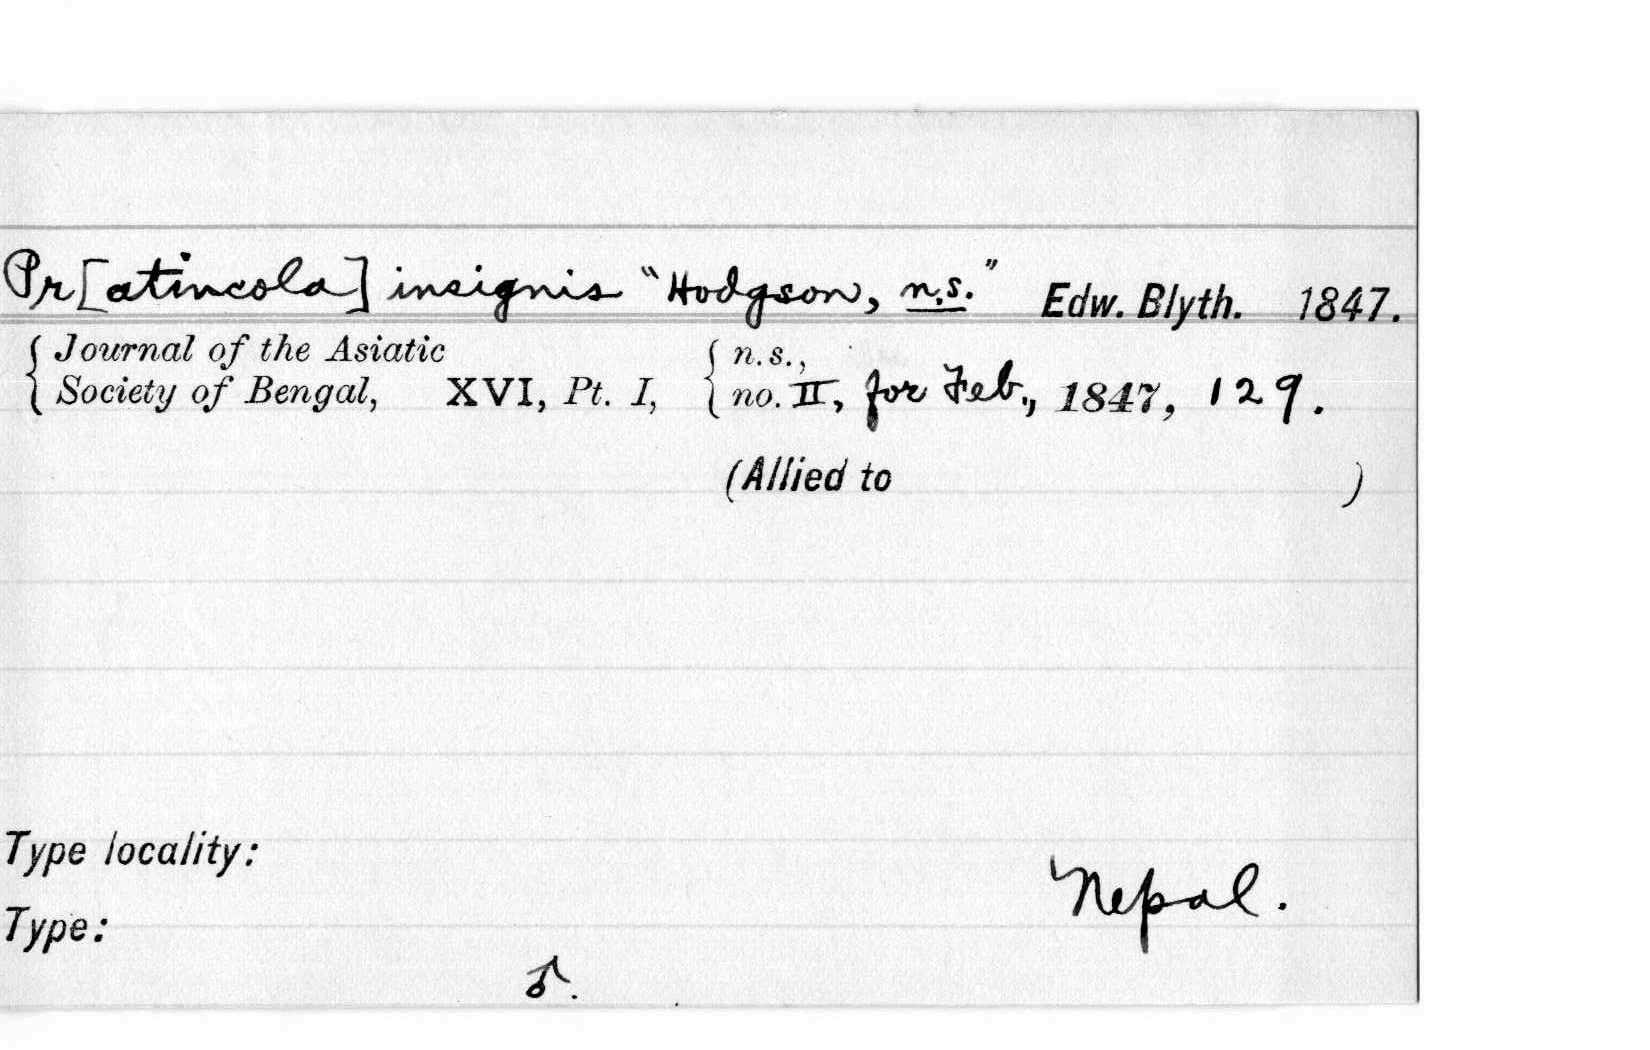 Pr[atincola] insignis "Hodgson, n.s." Edw. Blyth. 1847.
{ Journal of the Asiatic { n.s.,
{ Society of Bengal, XVI, Pt. I, { no. II, for Feb., 1847, 129.
(Allied to )
Type locality:
Nepal.
Type:
♂.